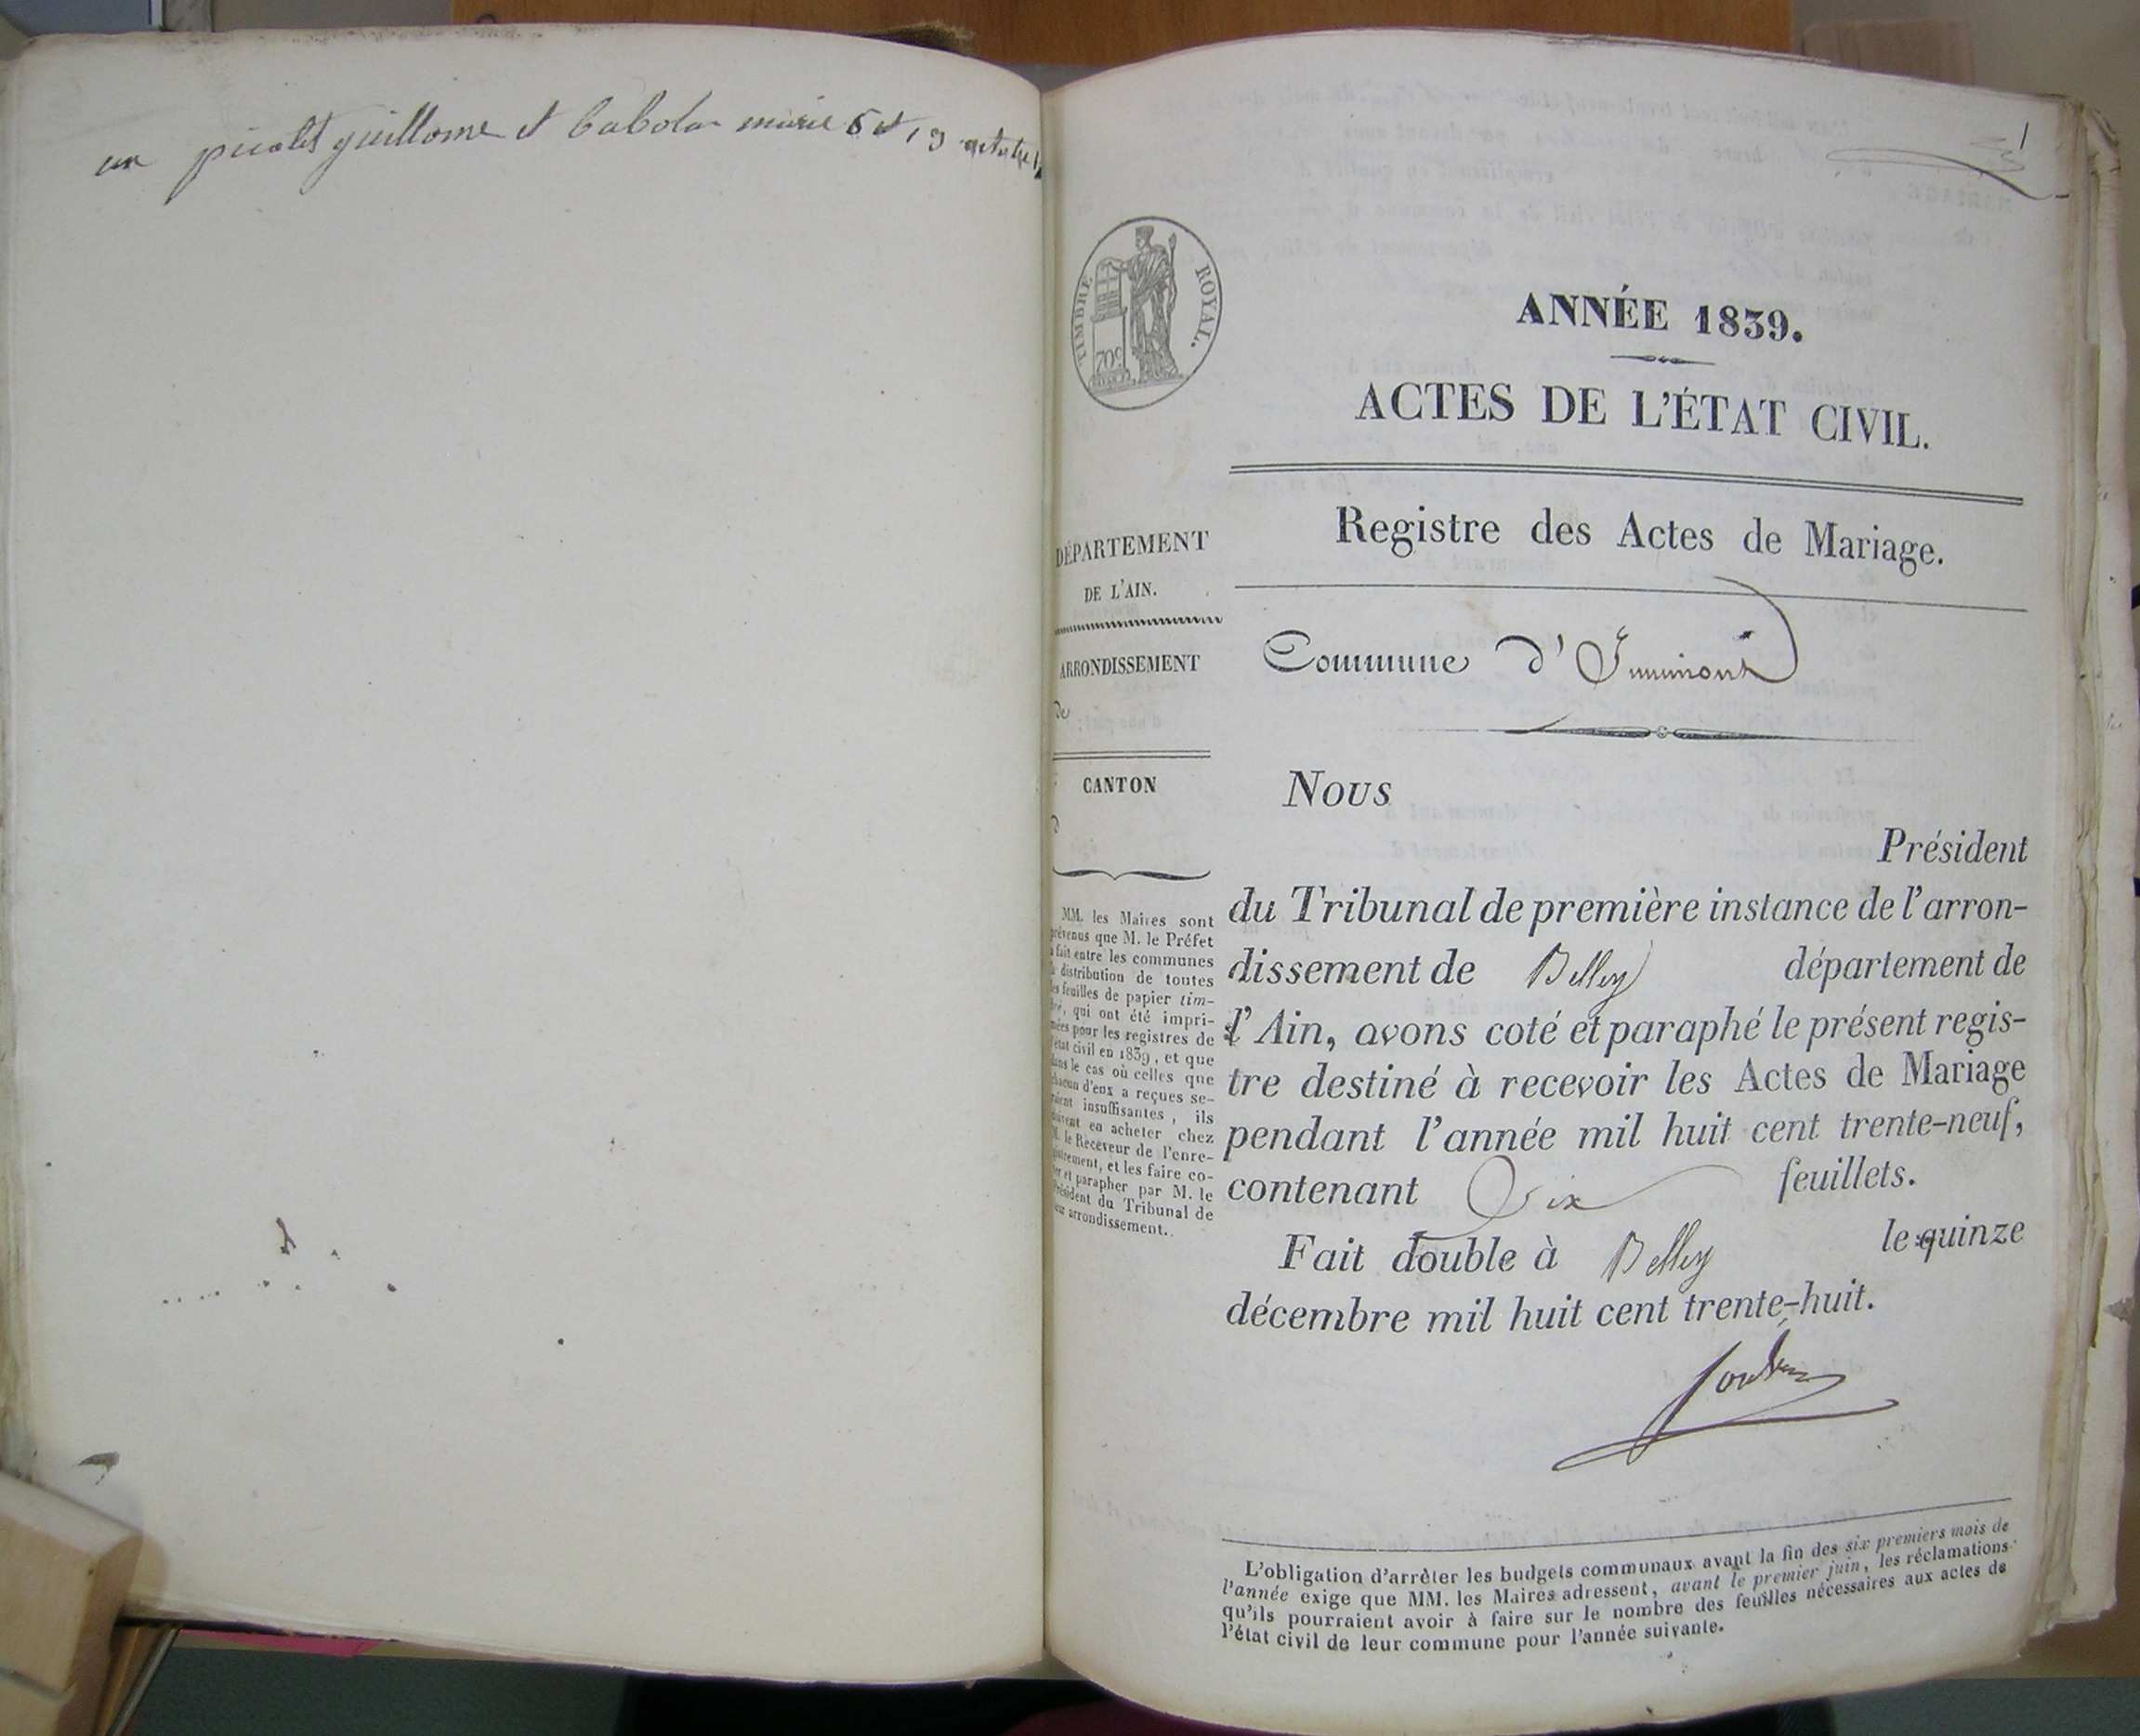 un picolet guillome et babolas marie 6 et 13 octobre
1
TIMBRE ROYAL.
70c
ANNÉE 1839.
ACTES DE L'ÉTAT CIVIL.
Registre des Actes de Mariage.
Commune d'Innimont
DÉPARTEMENT
DE L'AIN.
ARRONDISSEMENT
de
CANTON
d
MM. les Maires sont
prévenus que M. le Préfet
a fait entre les communes
la distribution de toutes
les feuilles de papier tim-
bré, qui ont été impri-
mées pour les registres de
l'état civil en 1839, et que
dans le cas où celles que
chacun d'eux a reçues se-
raient insuffisantes, ils
doivent en acheter chez
M. le Receveur de l'enre-
gistrement, et les faire co-
ter et parapher par M. le
Président du Tribunal de
leur arrondissement.
Nous
Président
du Tribunal de première instance de l'arron-
dissement de Belley département de
l'Ain, avons coté et paraphé le présent regis-
tre destiné à recevoir les Actes de Mariage
pendant l'année mil huit cent trente-neuf,
contenant Six feuillets.
Fait double à Belley le quinze
décembre mil huit cent trente-huit.
L'obligation d'arrêter les budgets communaux avant la fin des six premiers mois de
l'année exige que MM. les Maires adressent, avant le premier juin, les réclamations
qu'ils pourraient avoir à faire sur le nombre des feuilles nécessaires aux actes de
l'état civil de leur commune pour l'année suivante.